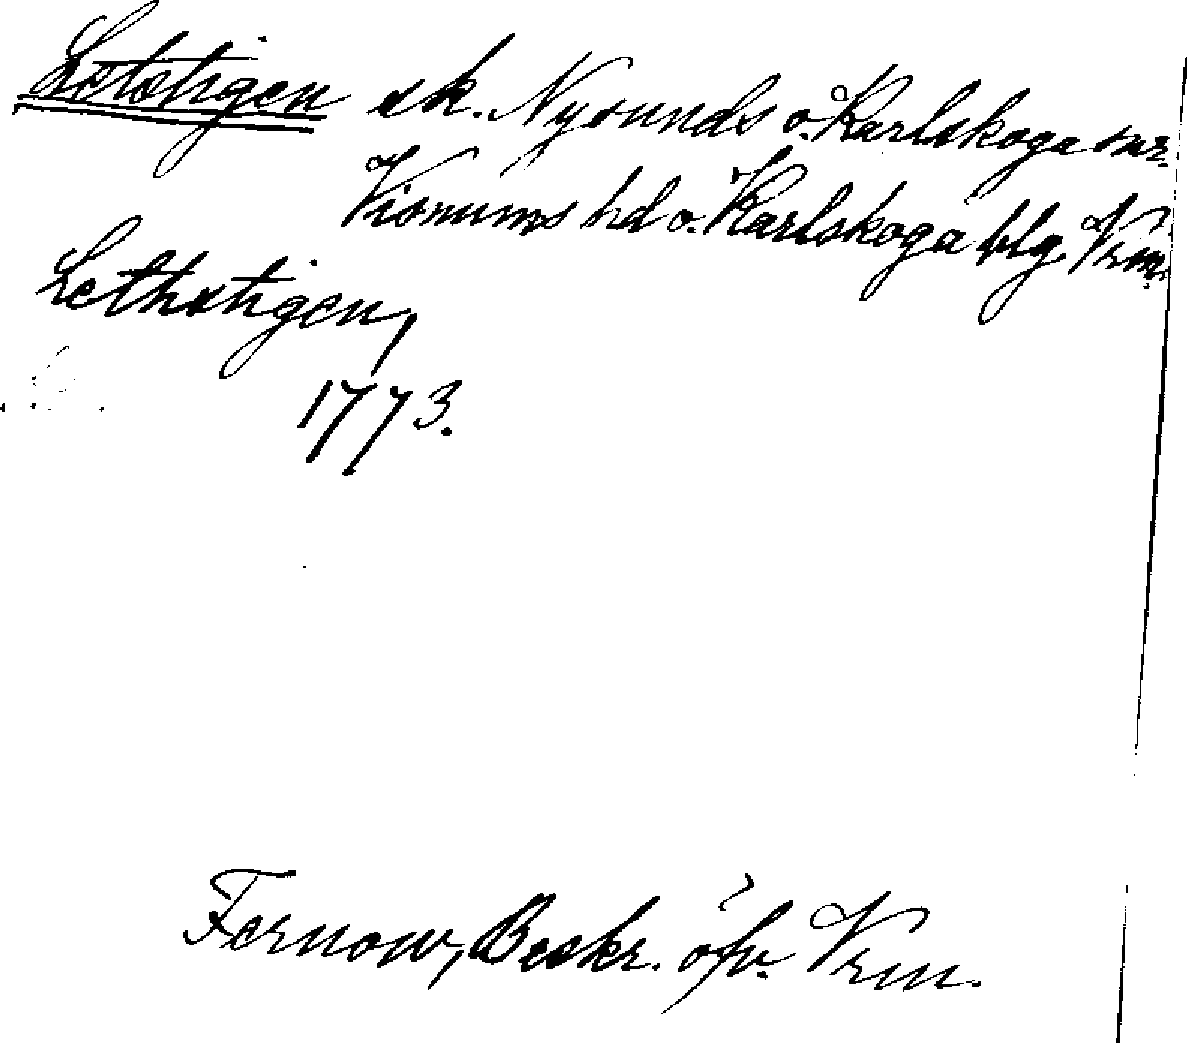 Letstigen sk. Nysunds o. Karlskoga snr.
Visnums hd o. Karlskoga blg. Vrm.
Lethstigen,
1773.
Fernow, Beskr. öfv. Vrm.